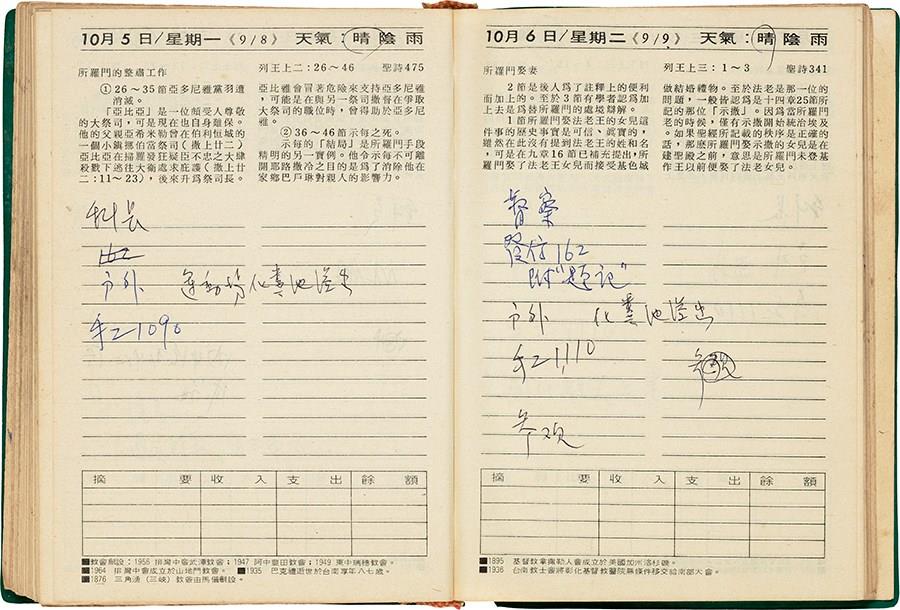 10月5日/星期一《9/8》 天氣：晴 陰 雨
所羅門的整肅工作 列王上二：26～46 聖詩475
①26～35節亞多尼雅黨羽遭
消滅。
「亞比亞」是一位頗受人尊敬
的大祭司，可是現在也自身難保。
他的父親亞希米勒曾在伯利恒城的
一個小鎮挪伯當祭司（撒上廿二）
亞比亞在掃羅發狂疑臣不忠之大肆
殺戮下逃往大衛處求庇護（撒上廿
二：11～23），後來升爲祭司長。
亞比雅曾冒著危險來支持亞多尼雅
，可能是在與另一祭司撒督在爭取
大祭司的職位時，曾得助於亞多尼
雅。
②36～46節示每之死。
示每的「結局」是所羅門手段
精明的另一實例。他令示每不可離
開耶路撒冷之目的是爲了消除他在
家鄉巴戶琳對親人的影響力。
科長
162
戶外 運動場化糞池溢出
手工1090
摘 要 收 入 支 出 餘 額
■教會創設：1956 排灣中會武潭教會；1947 阿中豐田教會；1949 東中瑞穗教會。
■1964 排灣中會成立於山地門教會。 ■1935 巴克禮逝世於台南享年八七歲。
■1876 三角湧（三峽）教會由馬偕創設。
10月6日/星期二《9/9》 天氣：晴 陰 雨
所羅門娶妻 列王上三：1～3 聖詩341
2節是後人爲了註釋上的便利
而加上的。至於3節有學者認爲加
上去是爲替所羅門的處境辯解。
1節所羅門娶法老王的女兒這
件事的歷史事實是可信、眞實的，
雖然在此沒有提到法老王的姓和名
，可是在九章16節已補充提出，所
羅門娶了法老王女兒而接受基色城
做結婚禮物。至於法老是那一位的
問題，一般皆認爲是十四章25節所
督察
發信162
附"題記"
戶外 化糞池溢出
手工1,110
参观
摘 要 收 入 支 出 餘 額
■1895 基督教拿撒勒人會成立於美國加州洛杉磯。
■1936 台南教士會將彰化基督教醫院無條件移交給南部大會。